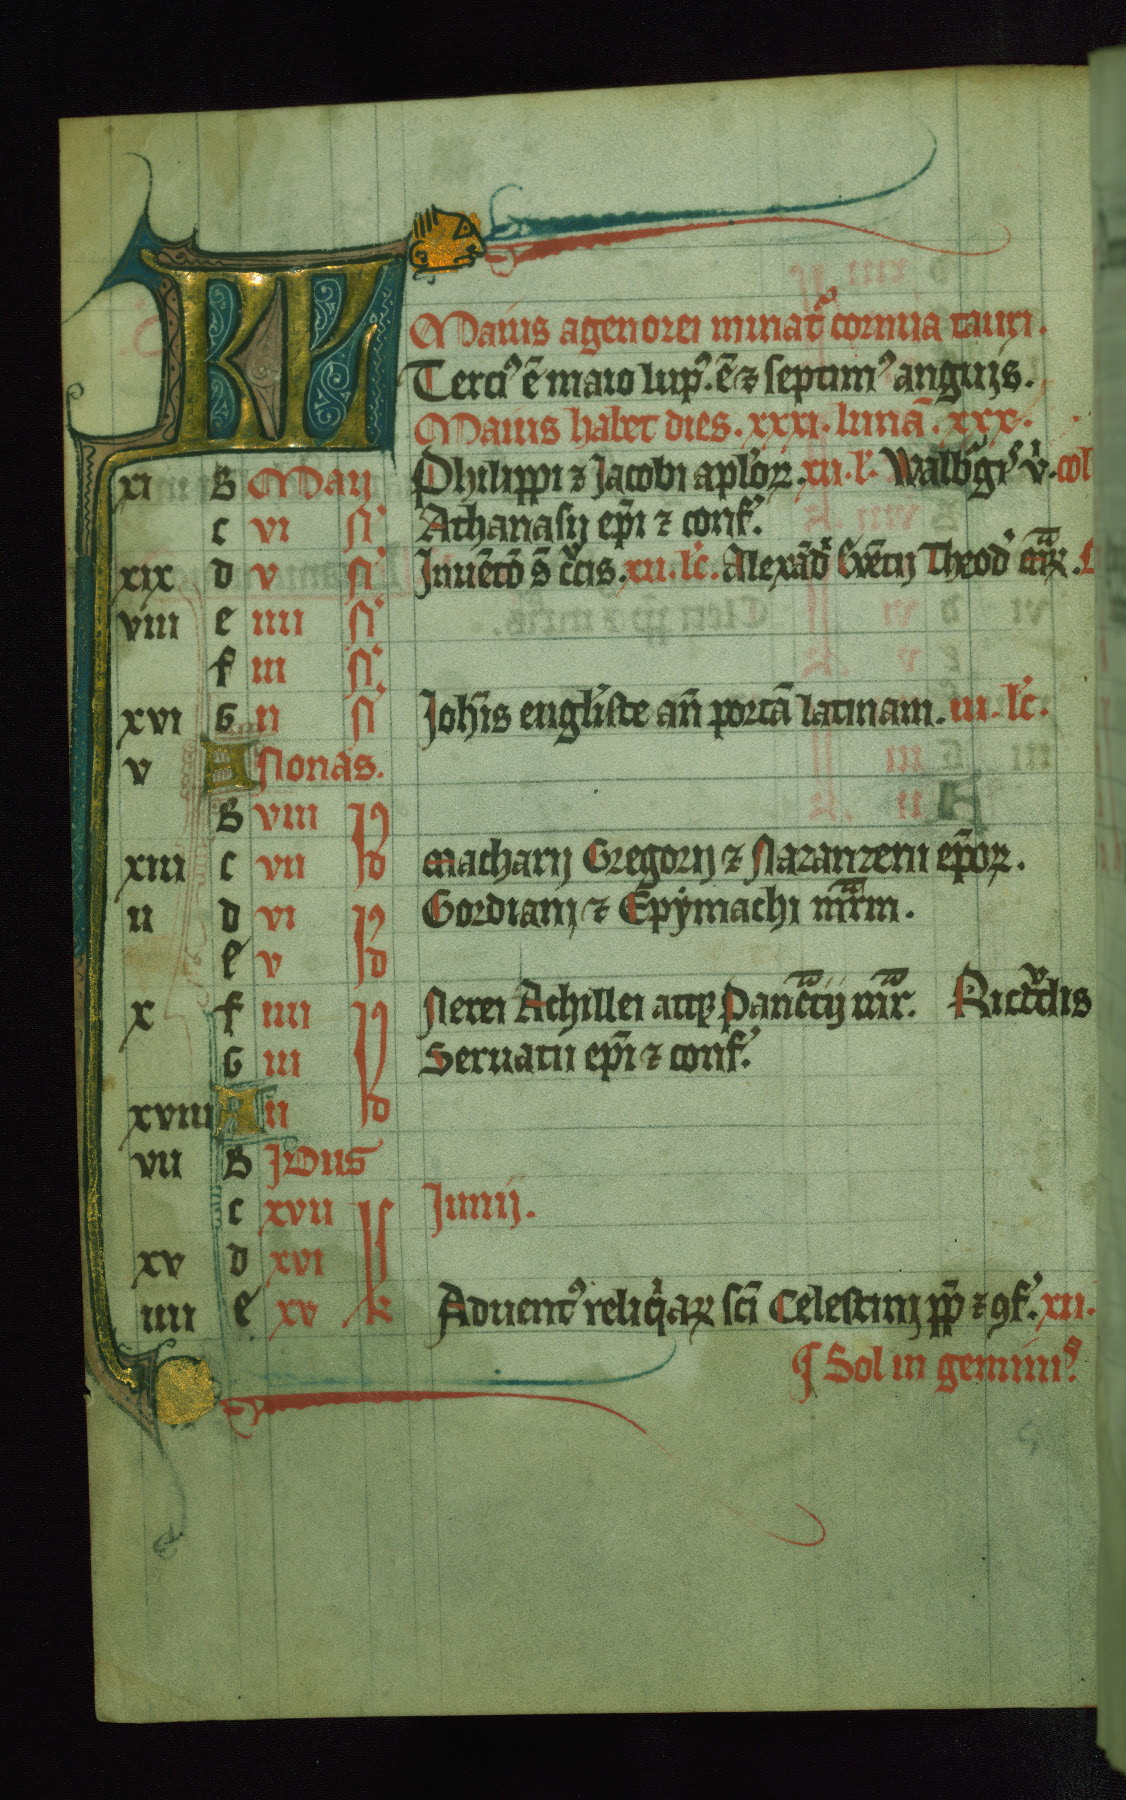 KL
Maius agenorei minat̄ cornua tauri.
Terci⁹ ē maio lup⁹. ē ⁊ septim⁹ anguis.
Maius habet dies. xxxi. lunā. xxx.
xi B Maij Philippi ⁊ Jacobi aplo̅ꝝ. xii. l'. Walb̅gꝭ v̇. col
c vi N' Athanasij ep̄i ⁊ conf'.
xix d v N' Inuēcō s̄ c̄cis. xii. lc̄. Alexād' Evētij Theod'
viii e iiii N'
f iii N'
xvi G ii N' Joh̅is eng̅liste an̄ portā latinam. iii. lc̄.
v A Nonas.
B viii Id
xiii c vii Macharij Gregorij ⁊ Nazanzeni ep̄oꝝ.
ii d vi Id Gordiani ⁊ Epymachi mr̄m.
e v
x f iiii Id Nerei Achillei atqꝫ Panc̄cij mr̄.
G iii Seruatii ep̄i ⁊ conf'.
xviii A ii
vii B Idus
c xvii kl Junij.
xv d xvi
iiii e xv Aduent⁹ reliq̄aꝝ sc̄i Celestini pp̄ ⁊ ꝯf'. xii.
¶ Sol in geminis